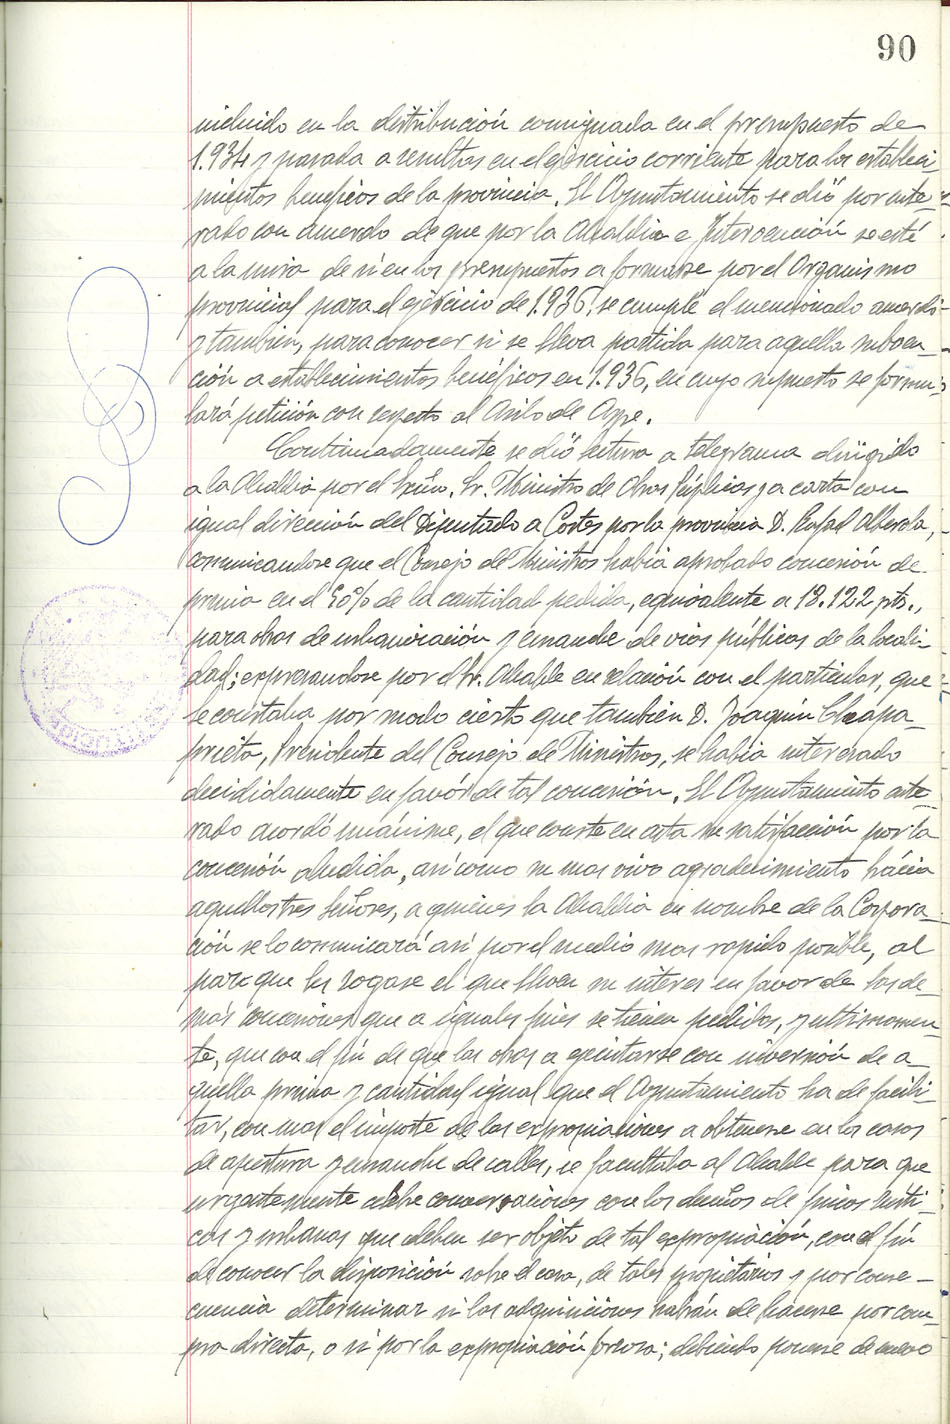 90
incluido en la distribución consignada en el presupuesto de
1.934 y pasada a resultas en el ejercicio corriente para los estableci-
mientos beneficos de la provincia. El Ayuntamiento se dió por ente-
rado con acuerdo de que por la Alcaldia e Intervención se esté
a la mira de si en los presupuestos a formarse por el Organismo
provincial para el ejercicio de 1.936, se cumple el mencionado acuerdo
y tambien, para conocer si se lleva partida para aquella subven-
ción a establecimientos benéficos en 1.936, en cuyo supuesto se formu-
lará petición con respecto al Asilo de Aspe.
Continuadamente se dió lectura a telegrama dirigido
a la Alcaldia por el Excmo. Sr. Ministro de Obras Públicas y a carta con
igual dirección del Diputado a Cortes por la provincia D. Rafael Alberola,
comunicandose que el Consejo de Ministros habia aprobado concesión de
prima en el 50% de la cantidad pedida, equivalente a 18.122 pts.,
para obras de urbanización y ensanche de vias públicas de la locali-
dad; expresandose por el Sr. Alcalde en relación con el particular, que
se constaba por modo cierto que también D. Joaquin Chapa-
prieta, Presidente del Consejo de Ministros, se habia interesado
decididamente en favor de tal concesión. El Ayuntamiento ente-
rado acordó unánime, el que conste en acta su satisfacción por la
concesión aludida, asi como su mas vivo agradecimiento hácia
aquellos tres Señores, a quienes la Alcaldia en nombre de la Corpora-
ción se lo comunicará asi por el medio mas rapido posible, al
par que les rogase el que lleven su interes en favor de las de-
más concesiones que a iguales fines se tienen pedidas, y ultimamen-
te, que con el fin de que las obras a ejecutarse con inversión de a-
quella prima y cantidad igual que el Ayuntamiento ha de facili-
tar, con mas el importe de las expropiaciones a obtenerse en los casos
de apertura y ensanche de calles, se facultaba al Alcalde para que
urgentemente celebre conversaciones con los dueños de fincas rústi-
cas y urbanas que deben ser objeto de tal expropiación, con el fin
de conocer la disposición sobre el caso, de tales propietarios y por conse-
cuencia determinar si las adquisiciones habrán de hacerse por com-
pra directa, o si por la expropiación forzosa; debiendo ponerse de nuevo